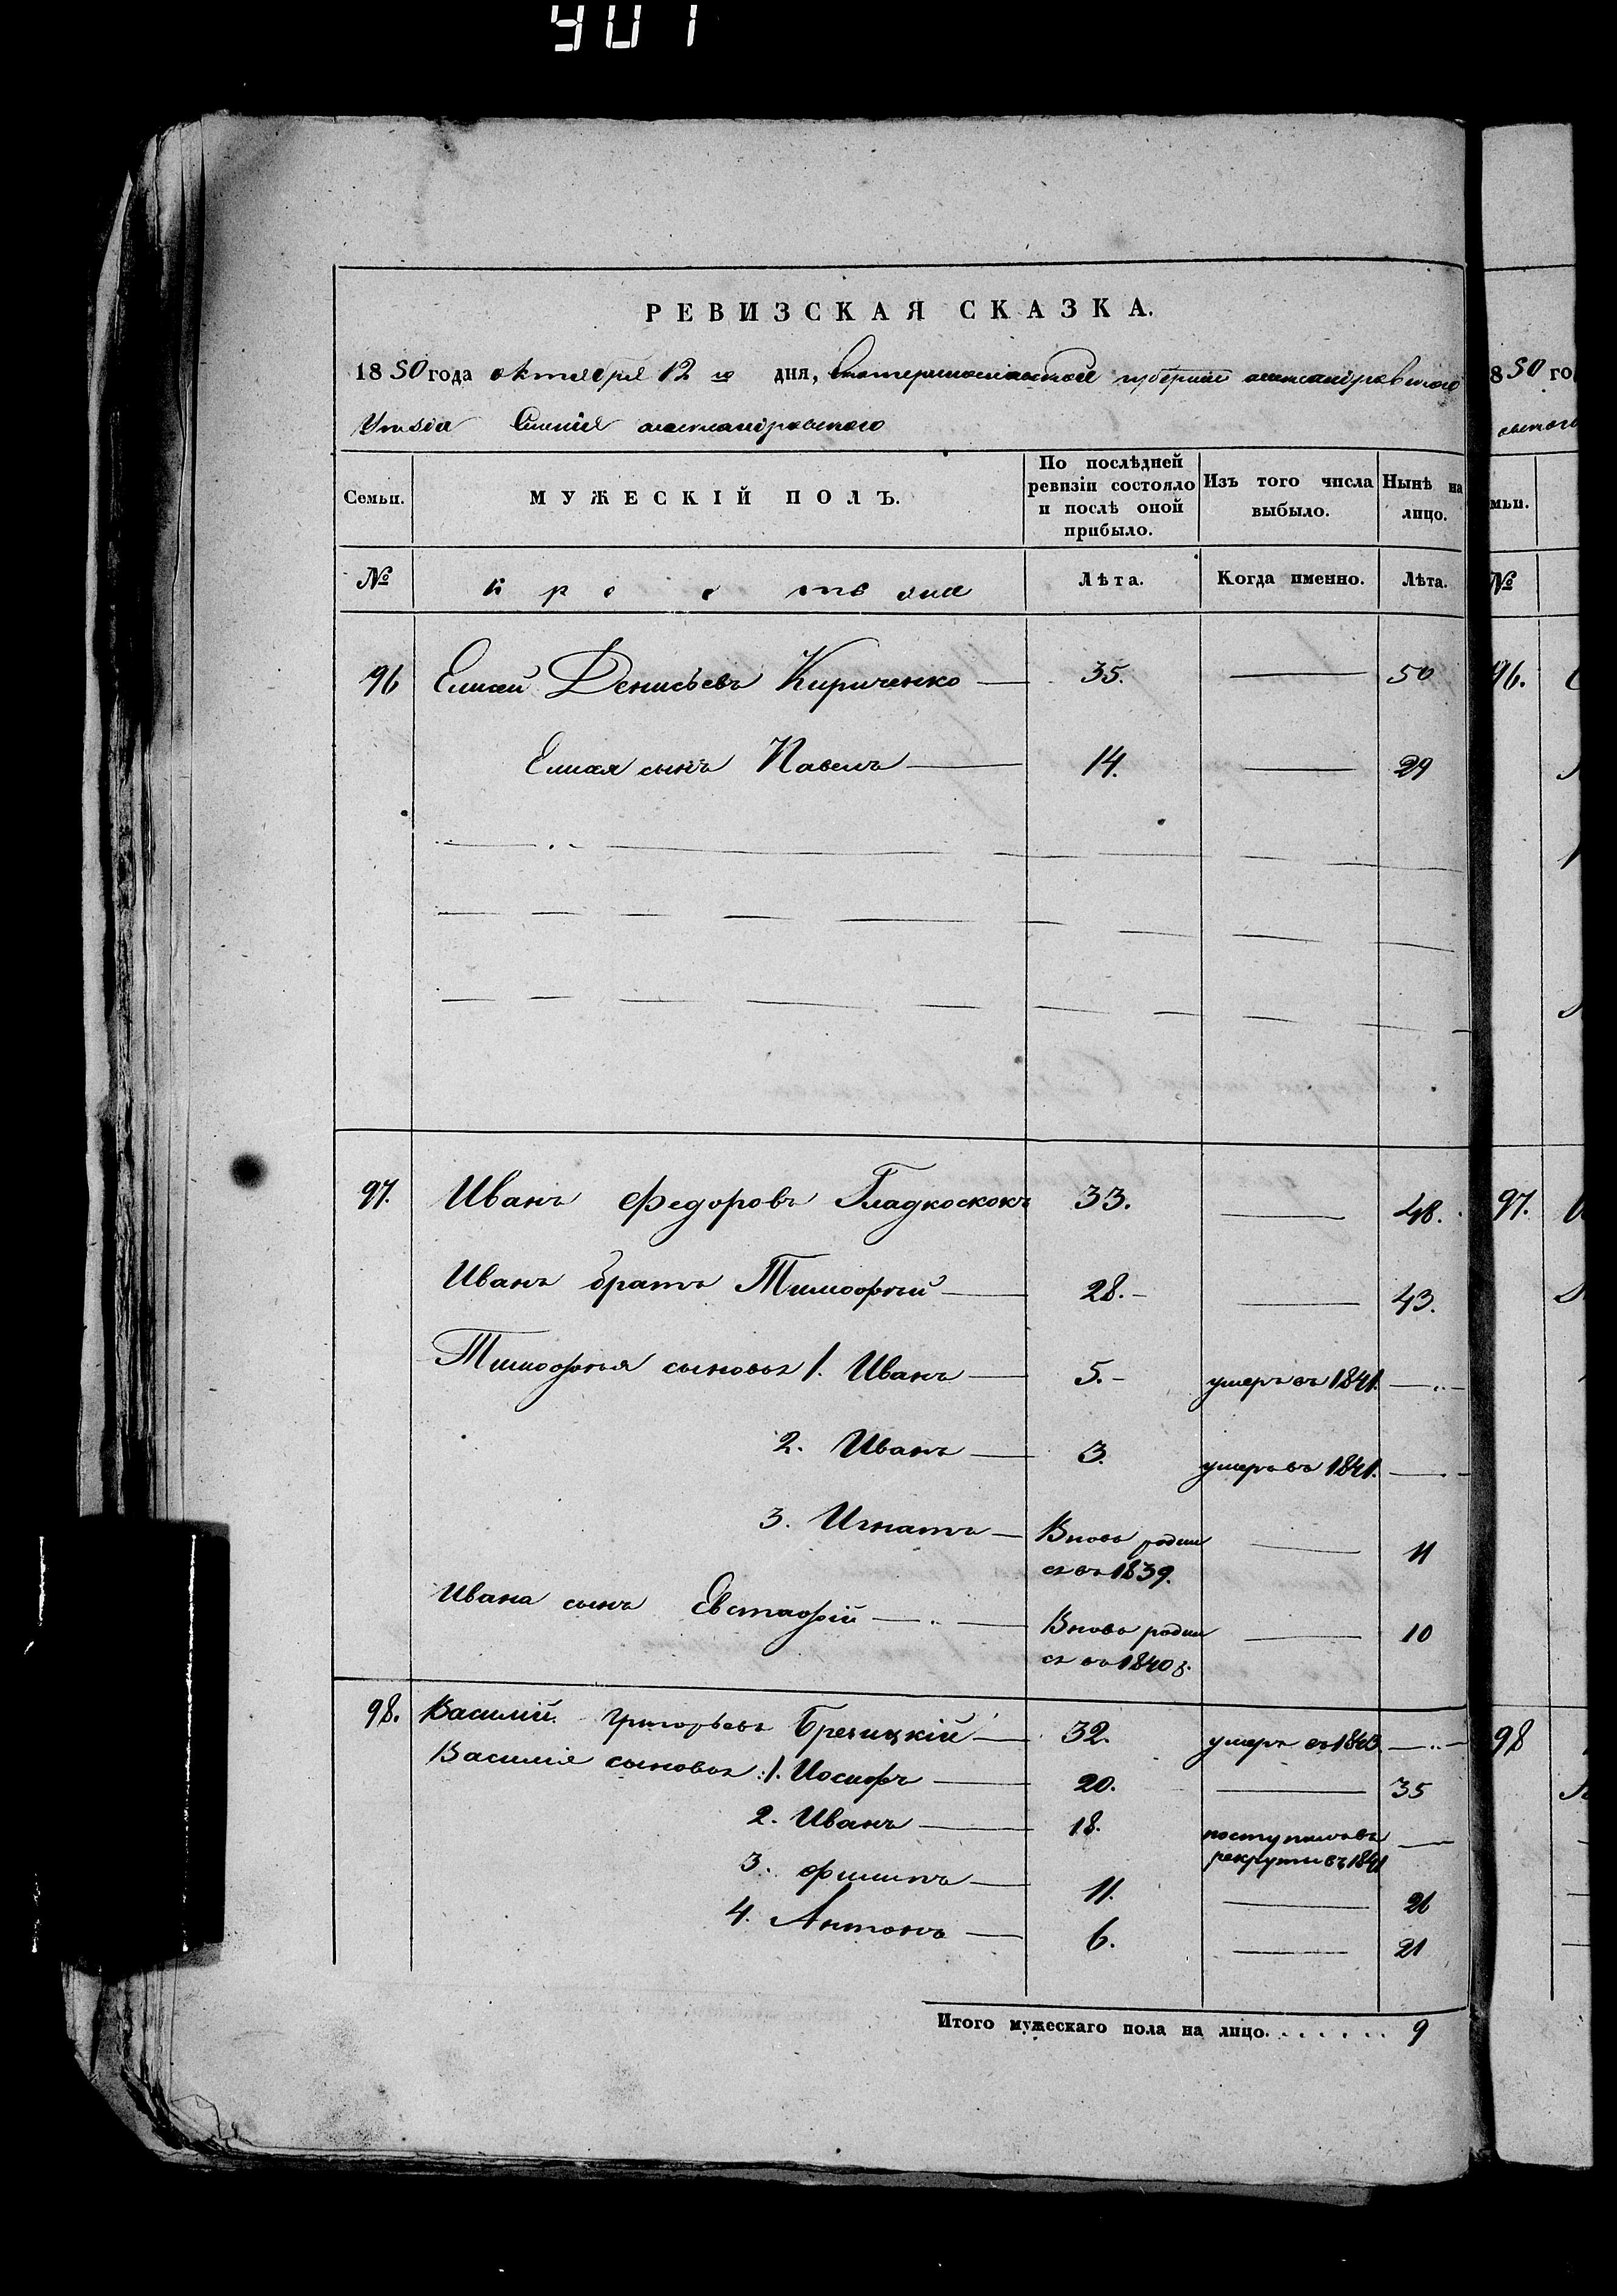 901
РЕВИЗСКАЯ СКАЗКА.
1850 года октября 12 го дня, Екатеринославской губернии александровского
Уѣзда Имѣния александровского
Семьи. МУЖЕСКІЙ ПОЛЪ. По послѣдней ревизіи состояло и послѣ оной прибыло. Изъ того числа выбыло. Нынѣ на лицо.
№ Лѣта. Когда именно. Лѣта.
96 Елисей Денисьевъ Кириченко 35. 50
Елисея сынъ Павелъ 14. 29
97. Иванъ Федоровъ Гладкоскокъ 33. 48.
Иванъ братъ Тимофѣй 28. 43.
Тимофѣя сыновья 1. Иванъ 5. умеръ въ 1841.
2. Иванъ 3. умеръ въ 1841.
3. Игнатъ Вновь родил
ся въ 1839. 11
Ивана сынъ Евстафій Вновь родил
ся въ 1840 г. 10
98. Василий Григорьевъ Бречицкій 32. умеръ въ 1843
Василія сыновья: 1. Иосифъ 20. 35
2. Иванъ 18. поступилъ въ
рекруты въ 1841
3. Филипъ 11. 26
4. Антонъ 6. 21
Итого мужескаго пола на лицо. . . . . . . 9
850 го
мьи.
№
96.
97.
98